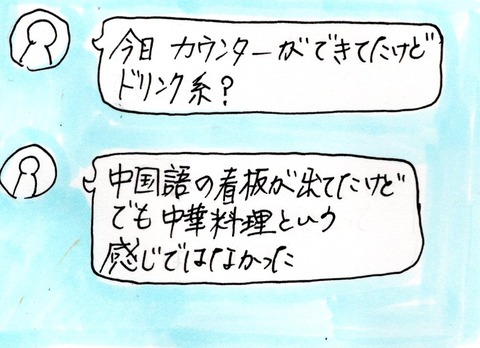 今日 カウンターができてたけど
ドリンク系？
中国語の看板が出てたけど
でも中華料理という
感じではなかった